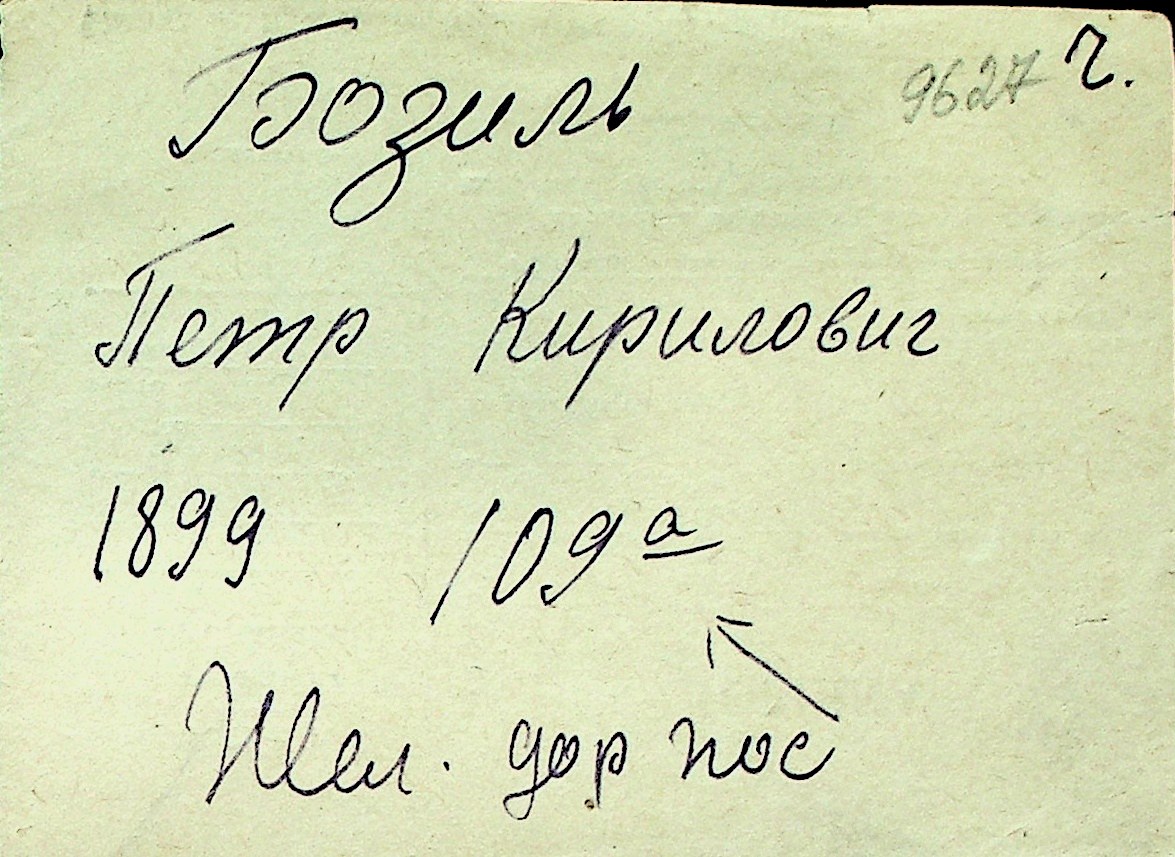 Бозиль 9627 г.
Петр Кирилович
1899 109а
Жел. дор пос